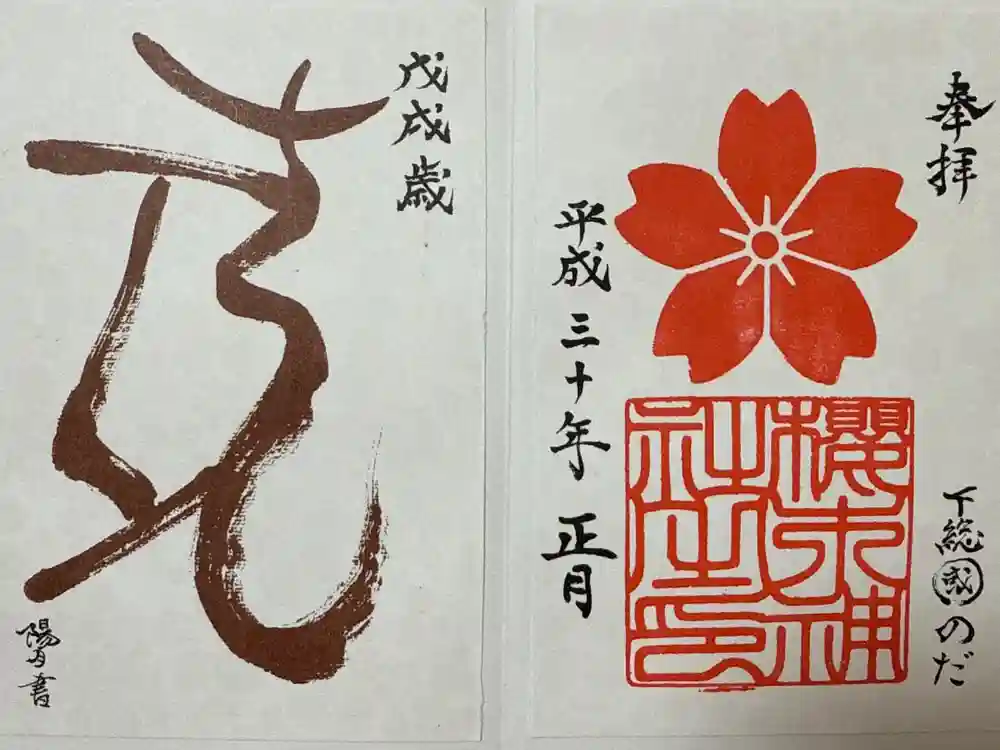 奉拝
下総國のだ
櫻木神
社之印
平成三十年 正月
戊戌歳
陽月書